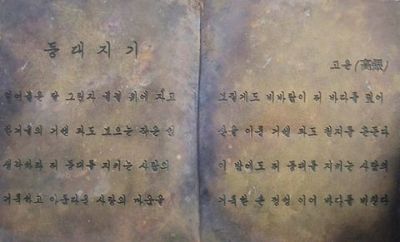 등대지기
얼어붙은 달 그림자 물결 위에 자고
한겨울의 거센 파도 모으는 작은 섬
생각하라 저 등대를 지키는 사람의
거룩하고 아름다운 사랑의 마음을
고은 (高銀)
모질게도 비바람이 저 바다를 덮어
산을 이룬 거센 파도 천지를 흔든다
이 밤에도 저 등대를 지키는 사람의
거룩한 손 정성 이어 바다를 비춘다